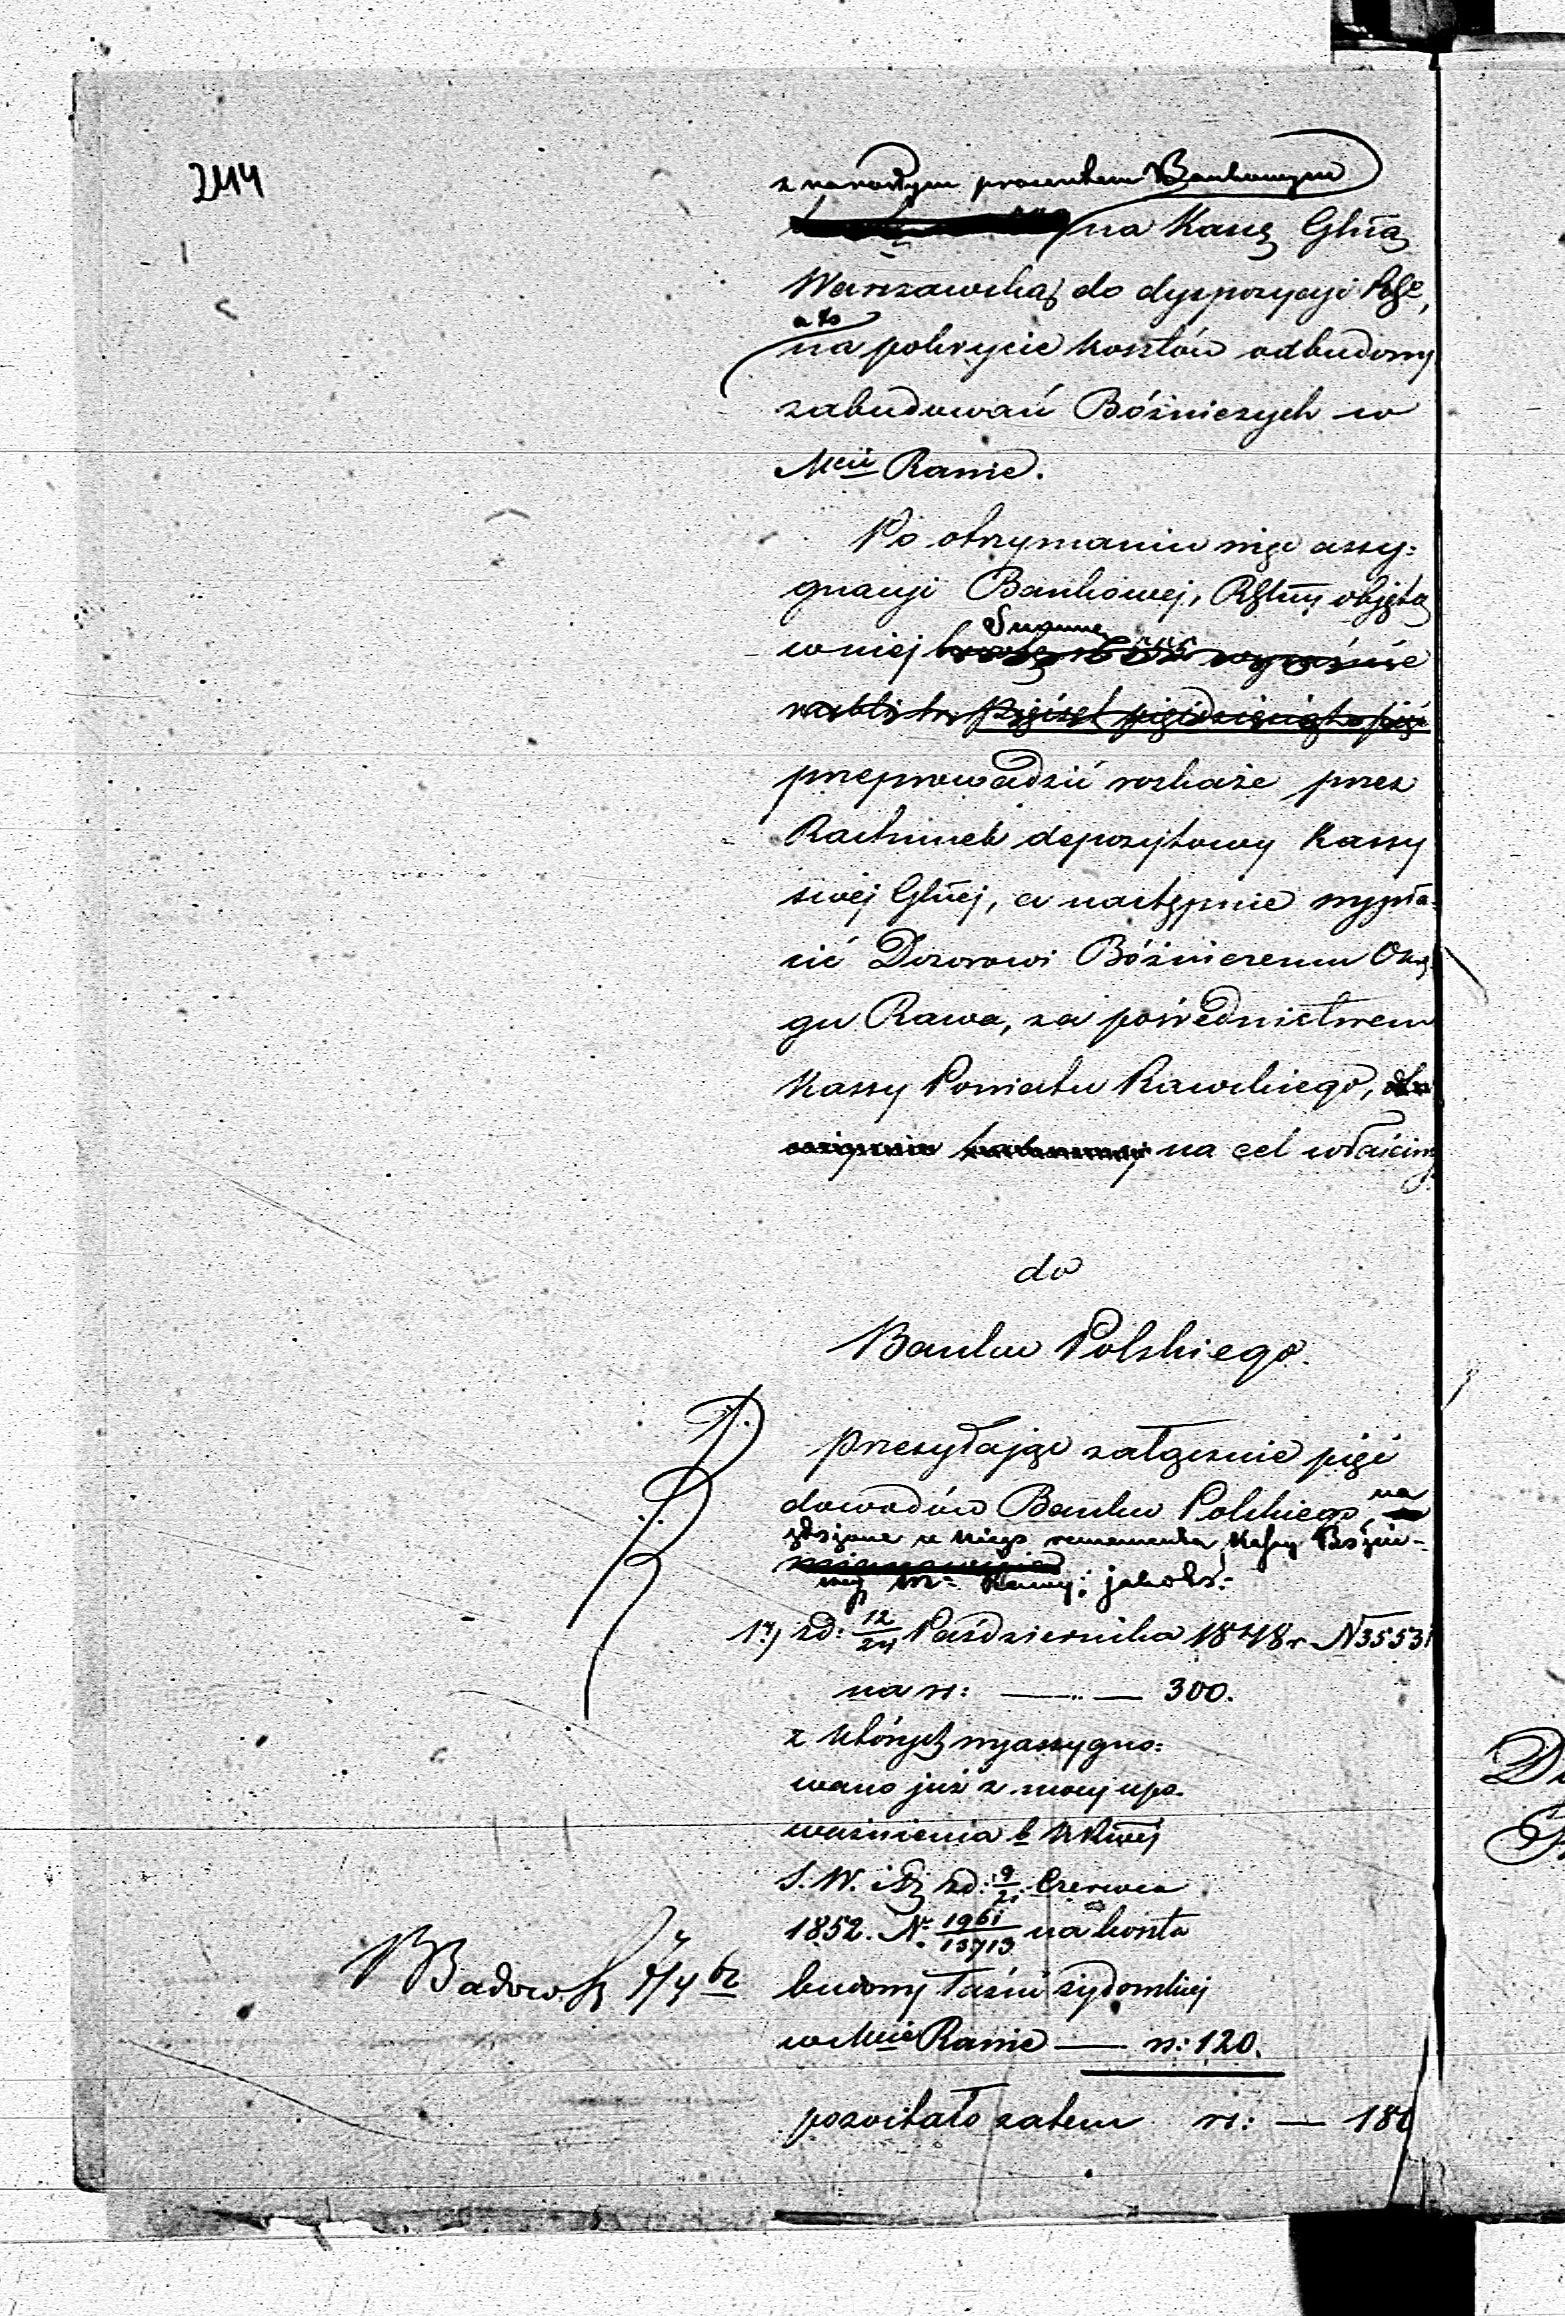 244
z narosłym procentem Bankowym
na Kassę Głną
Warszawską do dyspozycyi
a to
na pokrycie kosztów odbudowy
zabudowań Bóżniczych w
Mcie Rawie.
Po otrzymaniu więc assy=
gnacyi Bankowej, objętą
Summę
w niej kwotę wyraźnie
rubli sr. pięćset pięćdziesiąt pięć
przeprowadzić rozkaże przez
Rachunek depozytowy Kassy
swej Głnej, a następnie wypła=
cić Dozorowi Bóżniczemu Okrę=
gu Rawa, za pośrednictwem
Kassy Powiatu Rawskiego,
na cel właściwy
do
Banku Polskiego.
Przesyłając załącznie pięć
dowodów Banku Polskiego, na
złożone u niego remanenta Kassy Bóżni-
mianowicie
czej m= Rawy; jakoto:
1.) z d: 12/24 Października 1848 r N 3553
na rs: — „ — 300.
z których wyassygno=
wano już z mocy upo=
ważnienia b.
S. W. i D. z d: 9/21 Czerwca
1852. N. 1961/13713 na koszta
budowy łaźni żydowskiej
w Mcie Rawie — rs: 120.
pozostało zatem rs: — 180
Badow 7/4 62